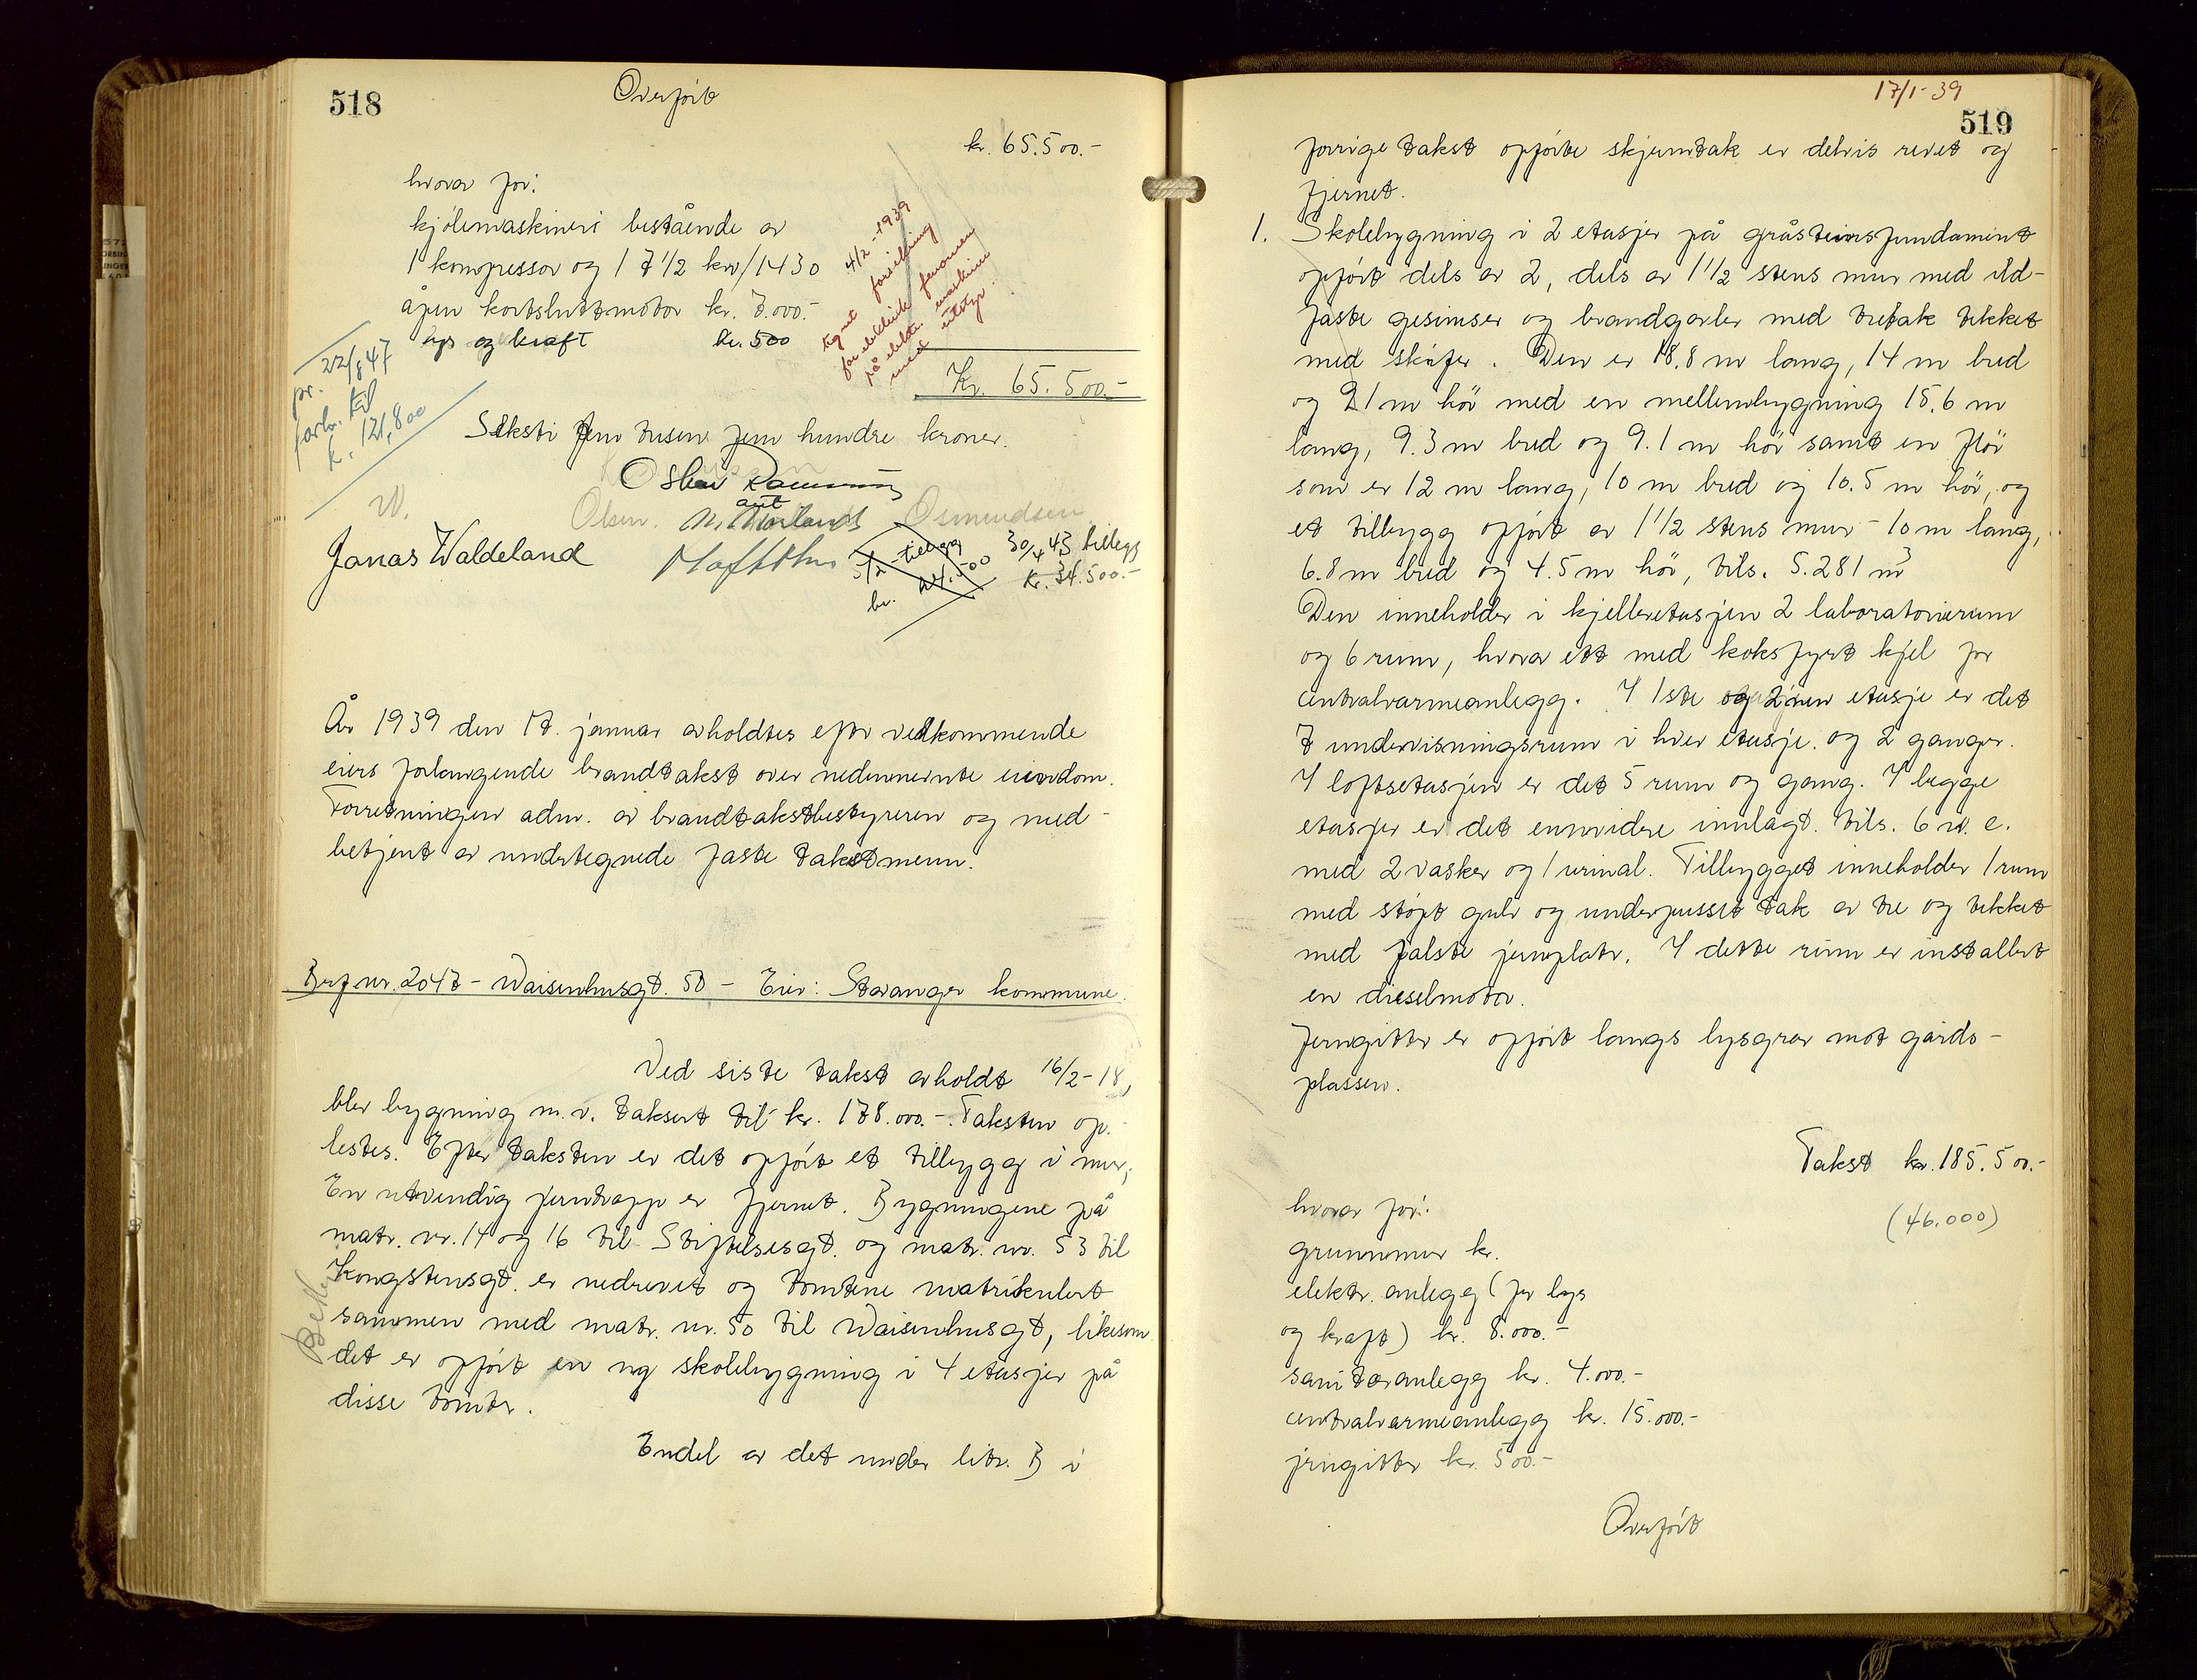 518
Overført
kr. 65.500.-
hvorav for:
kjølemaskineri bestående av
1 kompressor og 1 7 1/2 kw/1430
åpen kortsluttmotor kr. 7.000.-
lys og kraft kr. 500
4/2-1939
tegnet forsikring
for elektriske fenomener
på elektr. maskiner
med utstyr.
Kr. 65.500.-
pr. 22/8 47
forh. til
k. 121,800
Seksti fem tusen fem hundre kroner.
W. Olsen. Osmundsen
Jonas Waldeland
5/2 - tillegg
kr. 24.500
30/4 43 tillegg
kr. 34.500.-
År 1939 den 17. januar avholdtes efter vedkommende
eiers forlangende brandtakst over nedennevnte eiendom.
Forretningen adm. av brandtakstbestyreren og med-
betjent av undertegnede faste takstmenn.
Brf nr. 2047 - Waisenhusgt. 50 - Eier: Stavanger kommune.
Ved siste takst avholdt 16/2-18,
blev bygning m.v. taksert til kr. 178.000.-. Taksten op-
lestes. Efter taksten er det opført et tilbygg i mur,
En utvendig jerntrapp er fjernet. Bygningene på
matr. nr. 14 og 16 til Stiftelsesgt. og matr. nr. 53 til
Kongstensgt. er nedrevet og tomtene matrikulert
sammen med matr. nr. 50 til Waisenhusgt, likesom
det er opført en ny skolebygning i 4 etasjer på
disse tomter.
Endel av det under litr. B i
17/1-39
519
forrige takst opførte skjermtak er delvis revet og
fjernet.
1. Skolebygning i 2 etasjer på gråstensfundament
opført dels av 2, dels av 1 1/2 stens mur med ild-
faste gesimser og brandgavler med tretak tekket
med skifer. Den er 18.8 m lang, 14 m bred
og 21 m høi med en mellembygning 15.6 m
lang, 9.3 m bred og 9.1 m høi samt en fløi
som er 12 m lang, 10 m bred og 10.5 m høi, og
et tilbygg opført av 1 1/2 stens mur - 10 m lang,
6.8 m bred og 4.5 m høi, tils. 5.281 m3
Den inneholder i kjelleretasjen 2 laboratorierum
og 6 rum, hvorav ett med koksfyrt kjel for
centralvarmeanlegg. I 1ste og 2nen etasje er det
7 undervisningsrum i hver etasje og 2 ganger.
I loftsetasjen er det 5 rum og gang. I begge
etasjer er det ennvidere innlagt tils. 6 w.c.
med 2 vasker og 1 urinal. Tilbygget inneholder 1 rum
med støpt gulv og underpusset tak av tre og tekket
med falste jernplater. I dette rum er installert
en dieselmotor.
Jerngitter er opført langs lysgrav mot gårds-
plassen.
Takst kr. 185.500.-
hvorav for:
(46.000)
grunnmur kr.
elektr. anlegg (for lys
og kraft) kr. 8.000.-
sanitæranlegg kr. 4.000.-
centralvarmeanlegg kr. 15.000.-
jerngitter kr. 500.-
Overført